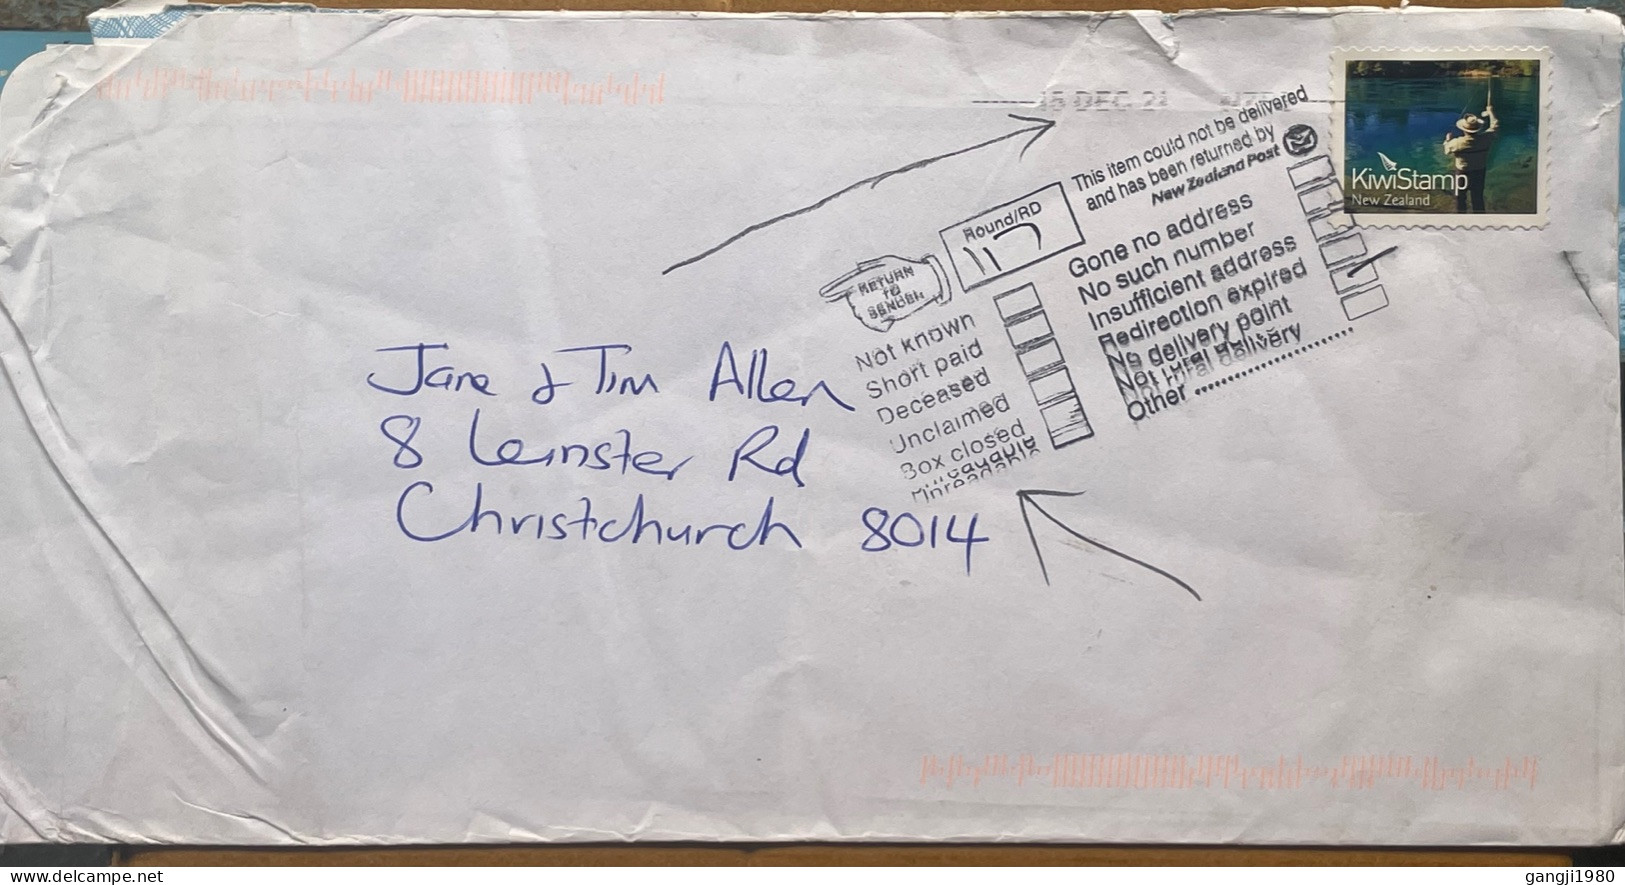 15 DEC 21
This item could not be delivered
and has been returned by
New Zealand Post
KiwiStamp
New Zealand
Round/RD
117
RETURN
TO
SENDER
Gone no address
No such number
Insufficient address
Redirection expired
No delivery point
Not rural delivery
Other
Not known
Short paid
Deceased
Unclaimed
Box closed
Unreadable
Jane & Tim Allen
8 Leinster Rd
Christchurch 8014
delcampe.net
gangji1980